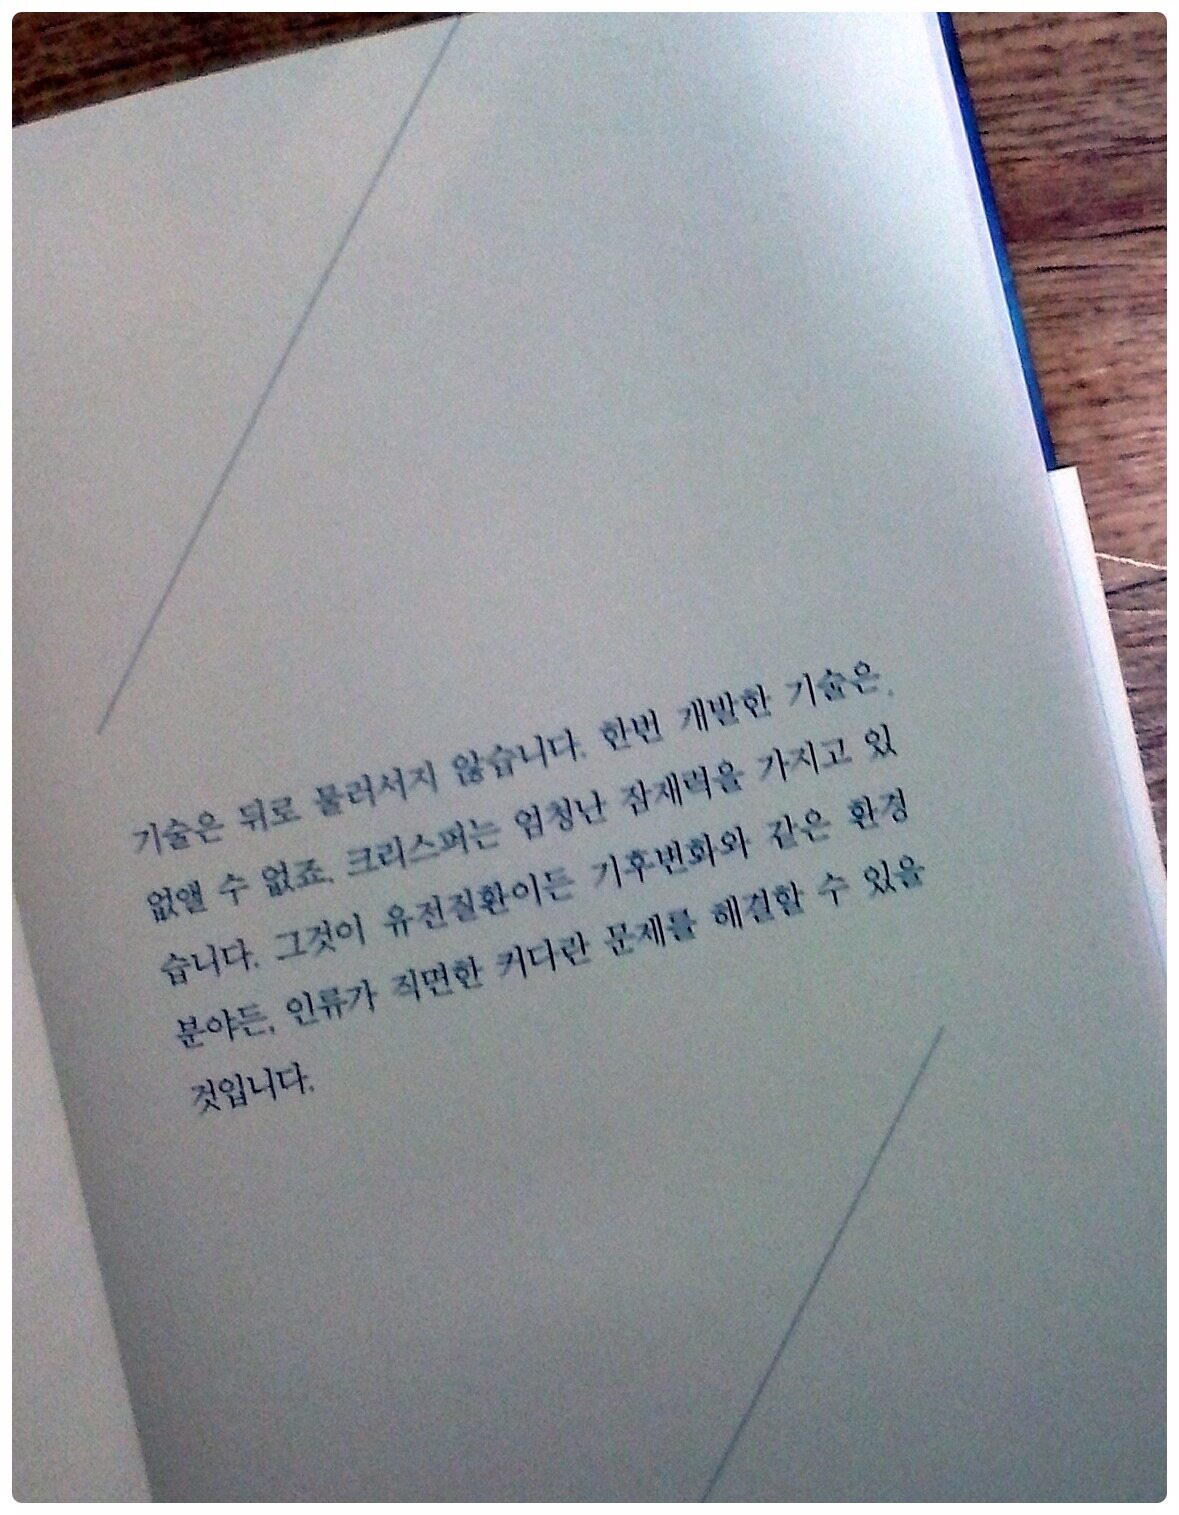 기술은 뒤로 물러서지 않습니다. 한번 개발한 기술은,
없앨 수 없죠. 크리스퍼는 엄청난 잠재력을 가지고 있
습니다. 그것이 유전질환이든 기후변화와 같은 환경
분야든, 인류가 직면한 커다란 문제를 해결할 수 있을
것입니다.